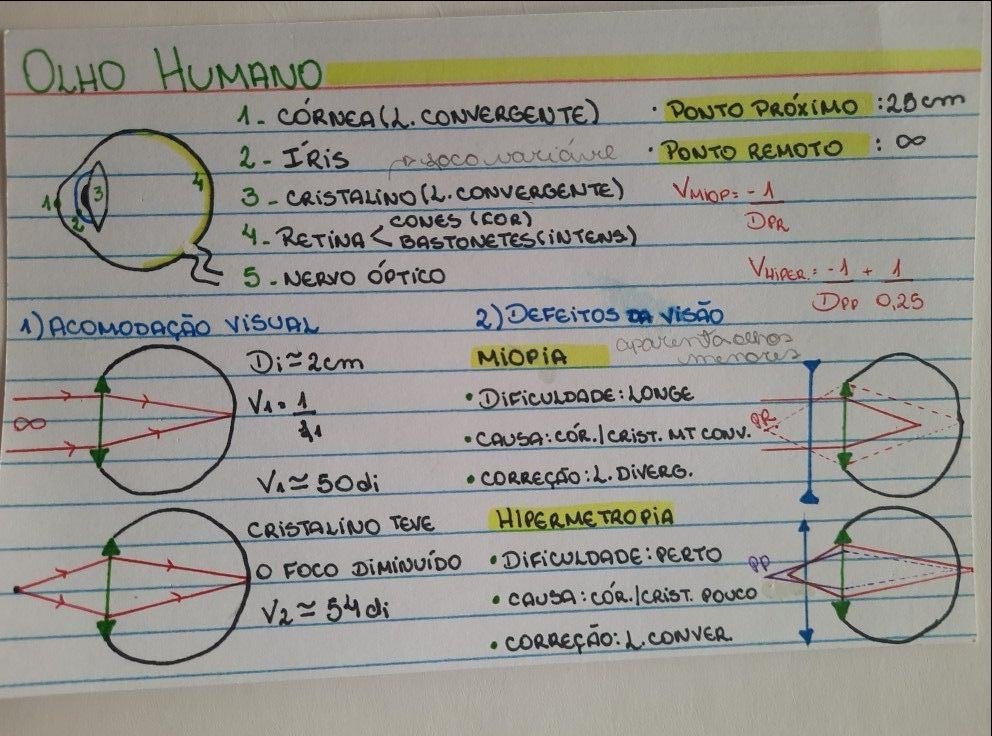 OLHO HUMANO
1 - CÓRNEA (L. CONVERGENTE)
2 - ÍRIS
→ foco variável
3 - CRISTALINO (L. CONVERGENTE)
4 - RETINA < CONES (COR)
BASTONETES (INTENS)
5 - NERVO ÓPTICO
• PONTO PRÓXIMO : 25cm
• PONTO REMOTO : ∞
VMIOP = -1
DPR
VHIPER. = -1 + 1
DPP 0,25
1 2 3 4
1) ACOMODAÇÃO VISUAL
∞
Di ≃ 2cm
V1 = 1
f1
V1 ≃ 50 di
CRISTALINO TEVE
O FOCO DIMINUÍDO
V2 ≃ 54 di
2) DEFEITOS DA VISÃO
MIOPIA
aparenta olhos
menores
• DIFICULDADE: LONGE
• CAUSA: CÓR. / CRIST. MT CONV.
• CORREÇÃO: L. DIVERG.
PR
HIPERMETROPIA
• DIFICULDADE: PERTO
• CAUSA: CÓR. / CRIST. POUCO
• CORREÇÃO: L. CONVER.
PP